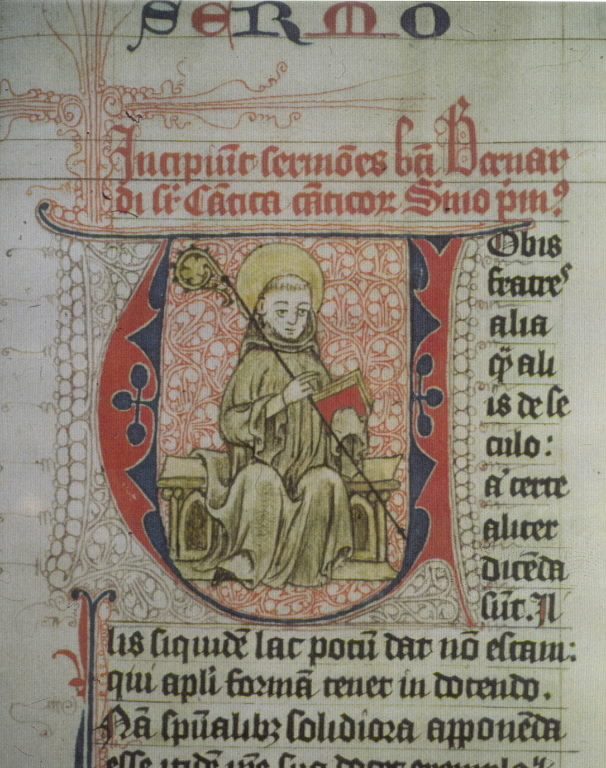 SERMO
Incipiūt sermões bt̄i Bernar
di sr̄ Cātica cāticoꝝ Sm̄o pm̄ꝰ
Vobis
fratres
alia
qꝫ ali
is de se
culo:
a' certe
aliter
dicēda
sūt. Il
lis siquidē lac potū dat nō escam:
qui apl̄i formā tenet in docendo.
Nā sp̄ualibꝫ solidiora apponēda
esse itidē